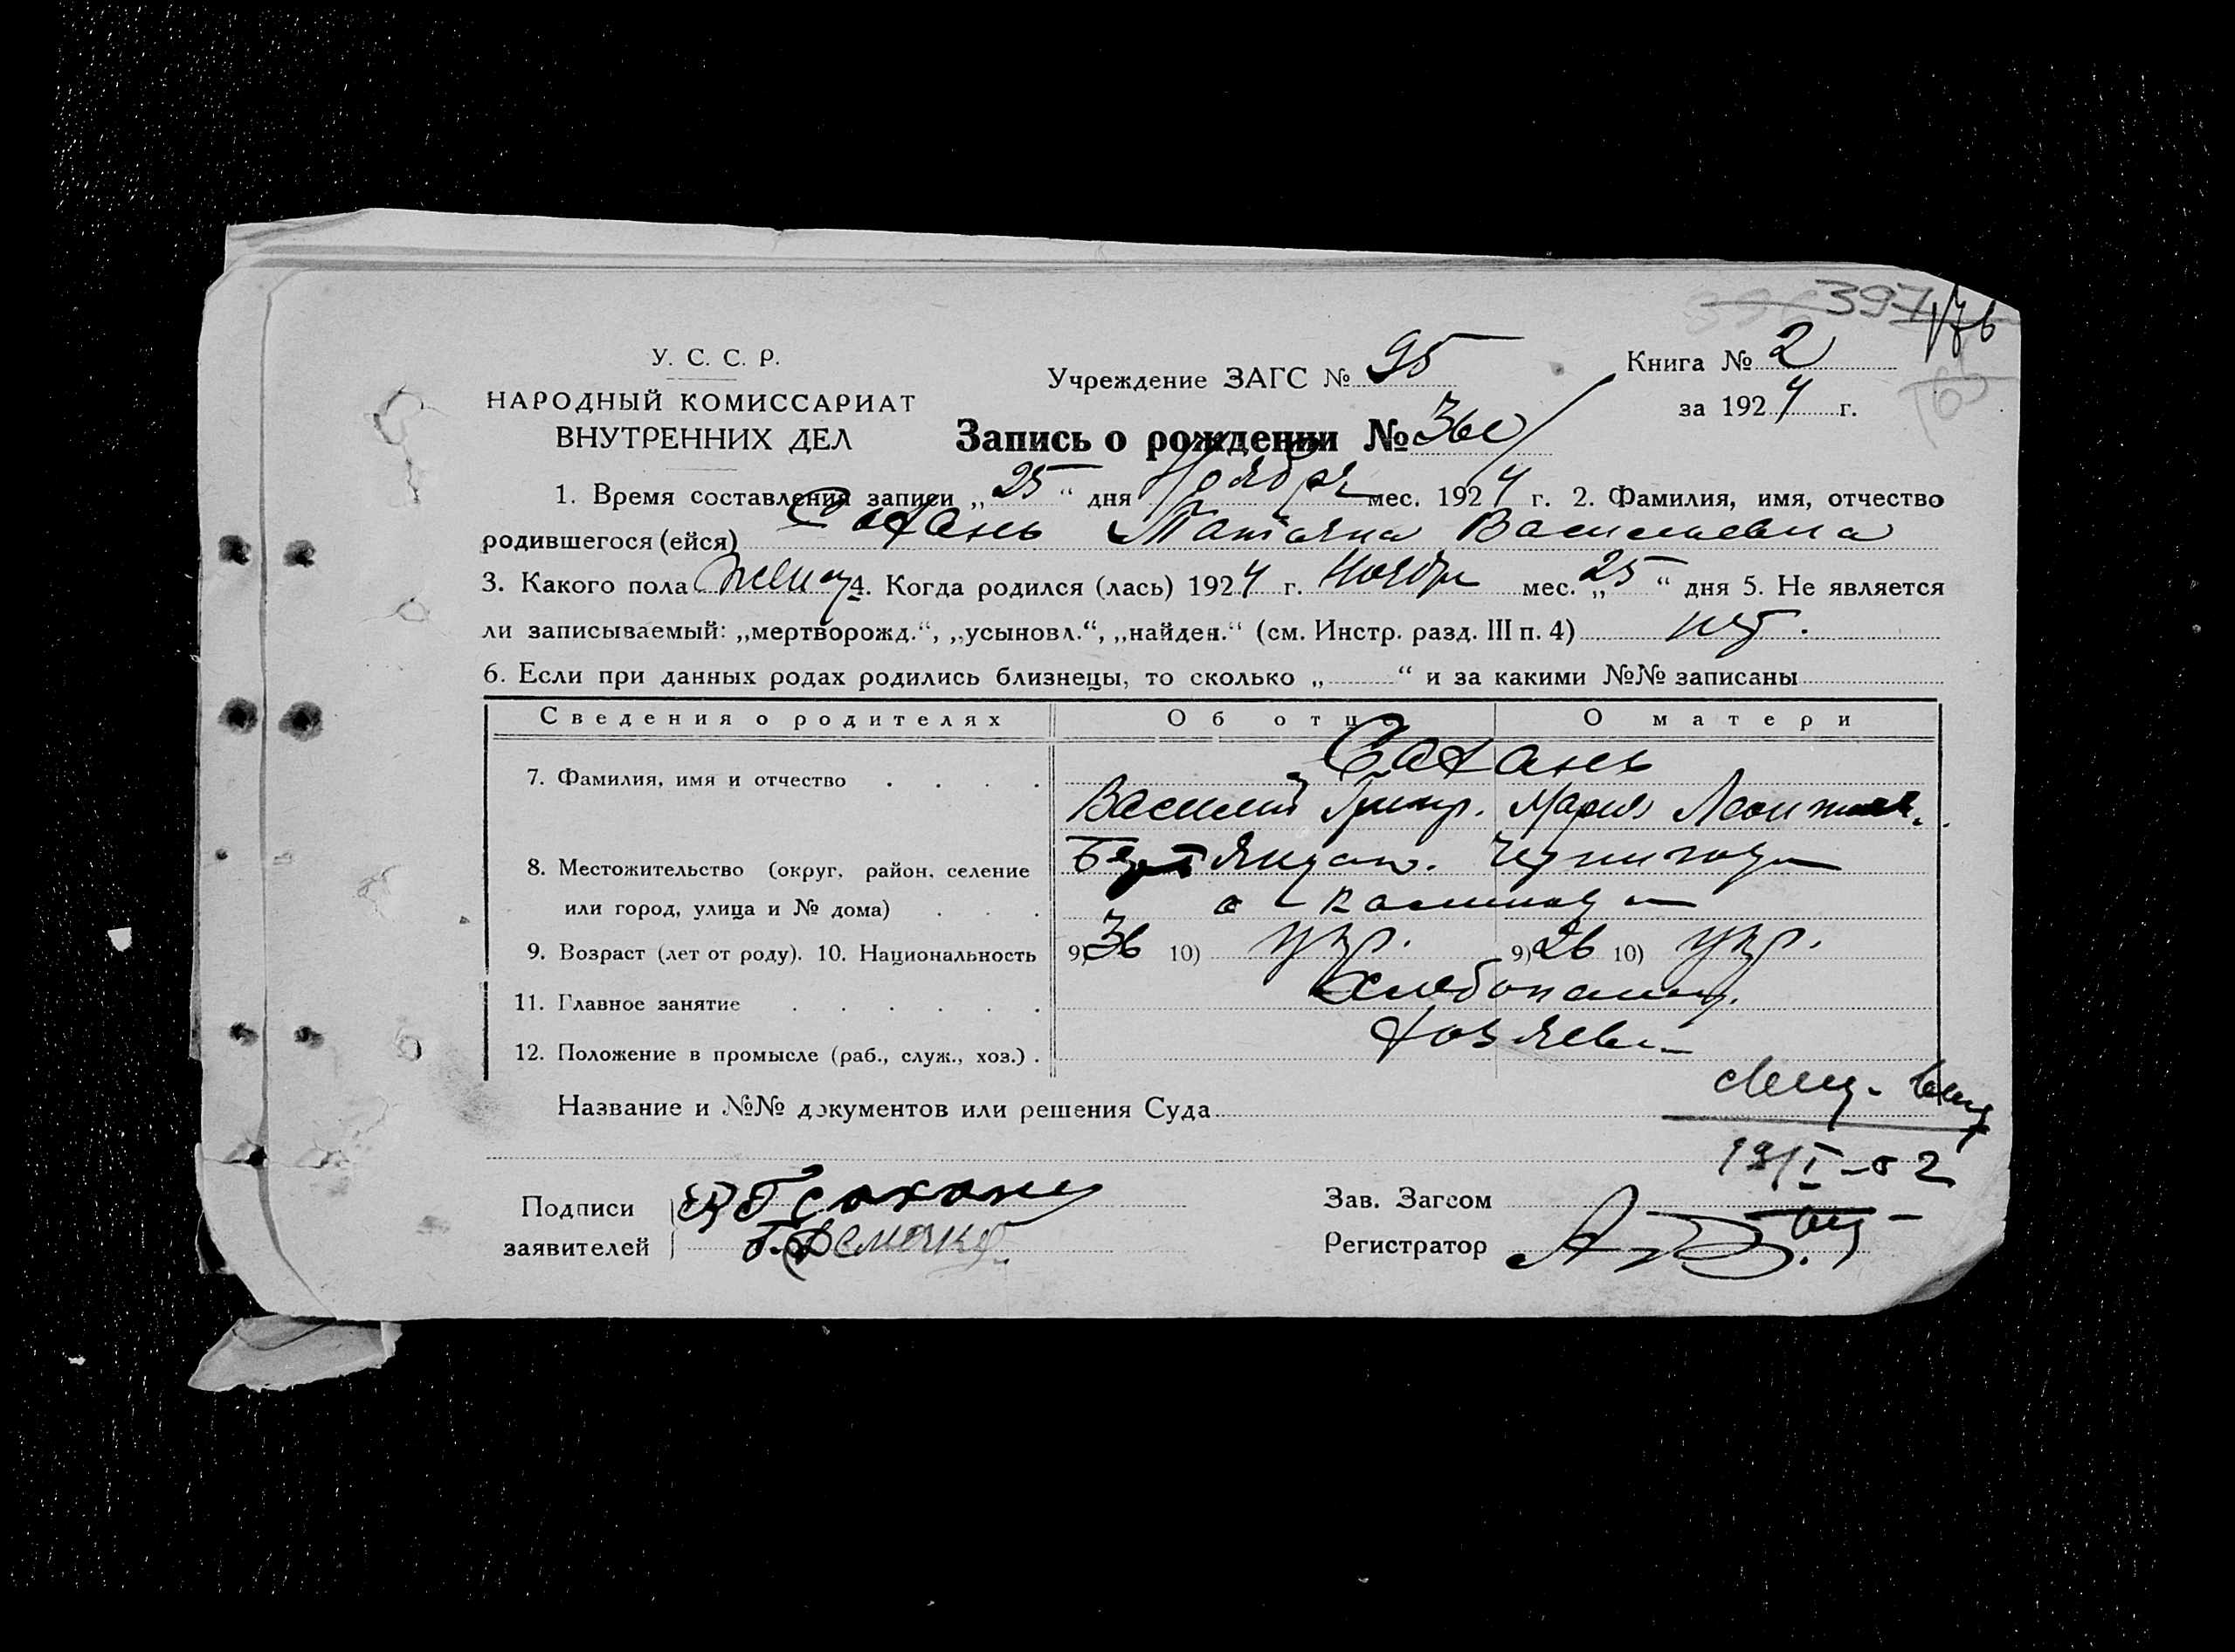 397
176
У. С. С. Р.
НАРОДНЫЙ КОМИССАРИАТ
ВНУТРЕННИХ ДЕЛ
Учреждение ЗАГС № 95
Книга № 2
за 1924 г.
Запись о рождении № 360
1. Время составления записи „25“ дня Ноября мес. 1924 г. 2. Фамилия, имя, отчество
родившегося (ейся) Сахань Татьяна Васильевна
3. Какого пола женск 4. Когда родился (лась) 1924 г. Ноябр мес. „25“ дня 5. Не является
ли записываемый: „мертворожд.“, „усыновл.“, „найден.“ (см. Инстр. разд. III п. 4) нет.
6. Если при данных родах родились близнецы, то сколько „ “ и за какими №№ записаны
Сведения о родителях Об отце О матери
7. Фамилия, имя и отчество Сахань
Василий Григор. Мария Леонтьев.
8. Местожительство (округ, район, селение
или город, улица и № дома)
9. Возраст (лет от роду). 10. Национальность 9) 36 10) укр. 9) 26 10) укр.
11. Главное занятие Хлебопашец.
12. Положение в промысле (раб., служ., хоз.) Хозяева
Название и №№ документов или решения Суда
Подписи
заявителей
Зав. Загсом
Регистратор